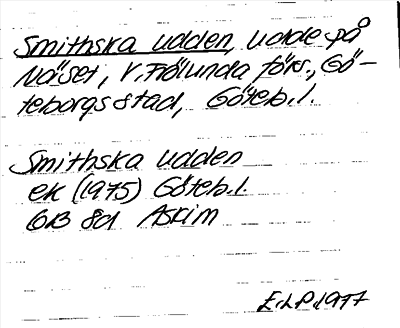 Smithska udden, udde på
Näset, V. Frölunda förs., Gö-
teborgs stad, Göteb. l.
Smithska udden
ek (1975) Göteb. l.
6B 8d Askim
E.L.P. 1977